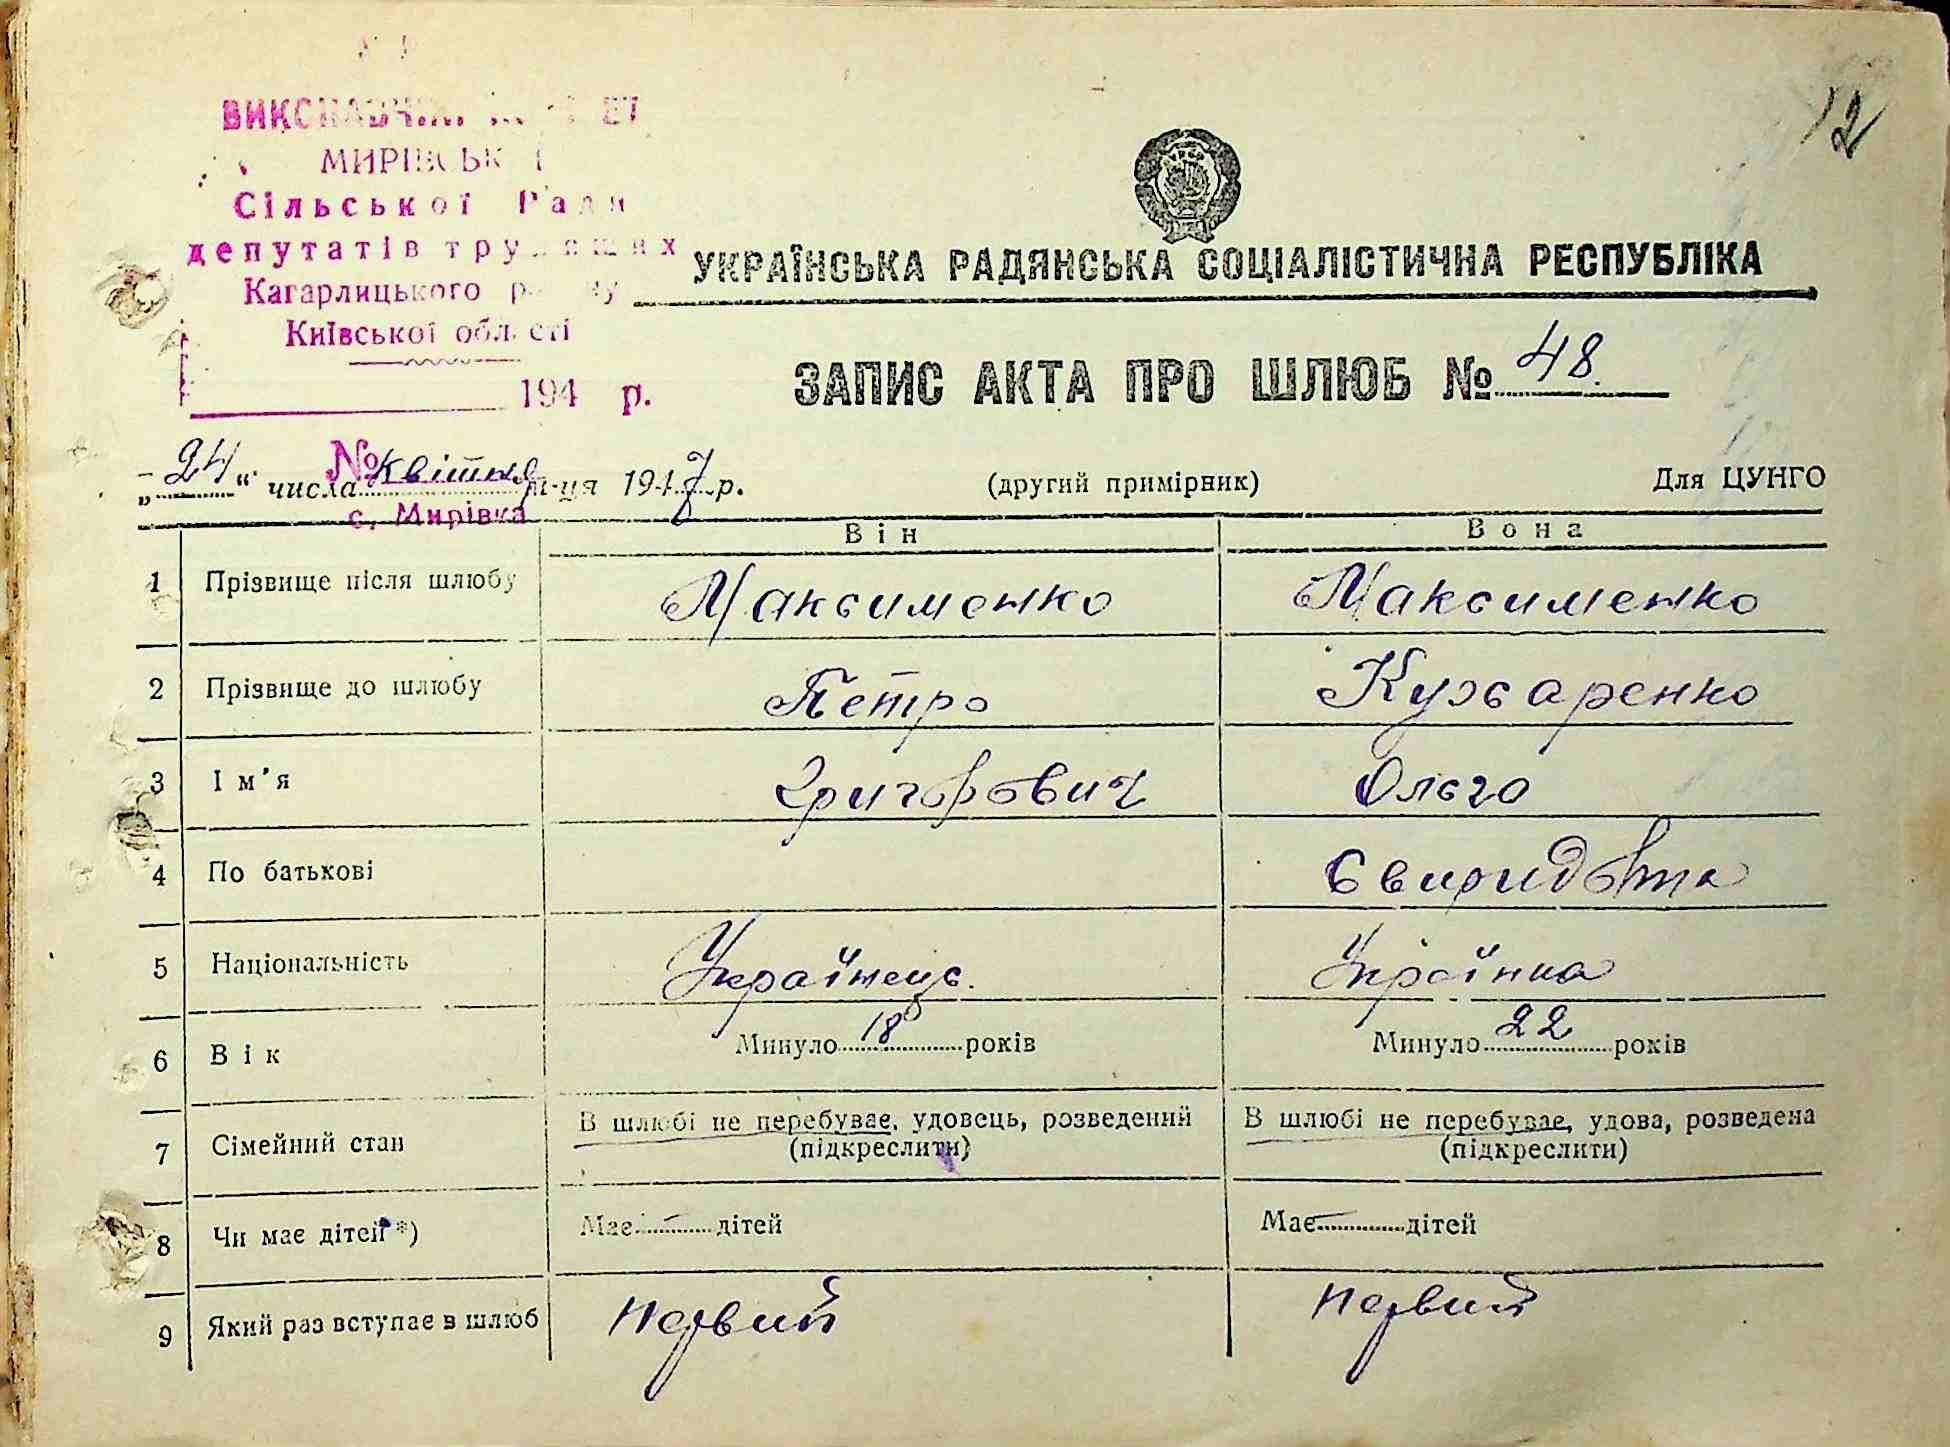 12
ВИКОНАВЧИЙ КОМІТЕТ
МИРІВСЬКОЇ
Сільської Ради
депутатів трудящих
Кагарлицького району
Київської області
194 р.
№
с. Мирівка
УКРАЇНСЬКА РАДЯНСЬКА СОЦІАЛІСТИЧНА РЕСПУБЛІКА
ЗАПИС АКТА ПРО ШЛЮБ № 48.
„24“ числа квітня м-ця 1947 р. (другий примірник) Для ЦУНГО
Він Вона
1 Прізвище після шлюбу Максименко Максименко
2 Прізвище до шлюбу Петро Кухаренко
3 Ім'я Григорович Ольга
4 По батькові
5 Національність Українець. Українка
6 Вік Минуло 18 років Минуло 22 років
7 Сімейний стан В шлюбі не перебуває, удовець, розведений В шлюбі не перебуває, удова, розведена
(підкреслити) (підкреслити)
8 Чи має дітей *) Має - дітей Має - дітей
9 Який раз вступає в шлюб первий первий